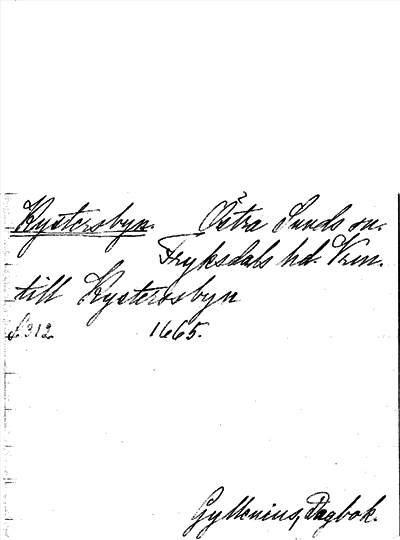 Kystersbyn. Östra Sunds sn.
Fryksdals hd. Vrm.
till Kysterosbyn
S. 312. 1665.
Gyllenius, Dagbok.